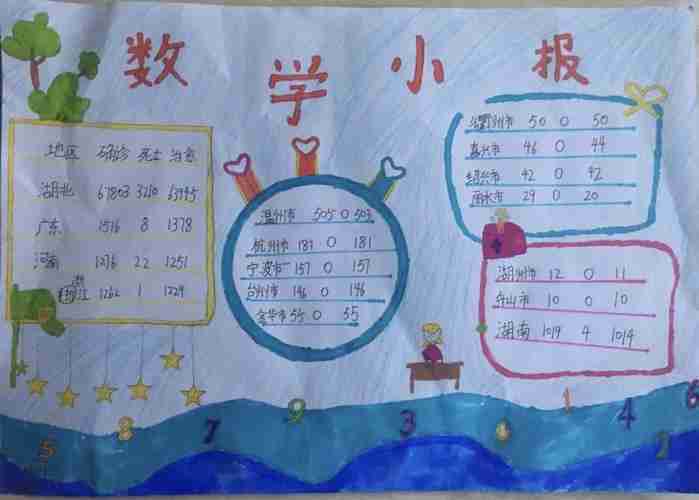 数学小报
地区 确诊 死亡 治愈
湖北 67803 3210 63945
广东 1516 8 1378
河南 1276 22 1251
浙江 1262 1 1229
温州市 505 0 503
杭州市 181 0 181
宁波市 157 0 157
台州市 146 0 146
金华市 55 0 55
衢州市 50 0 50
嘉兴市 46 0 44
绍兴市 42 0 42
丽水市 29 0 20
湖州市 12 0 11
舟山市 10 0 10
湖南 1019 4 1014
5 8 7 9 3 6 1 4